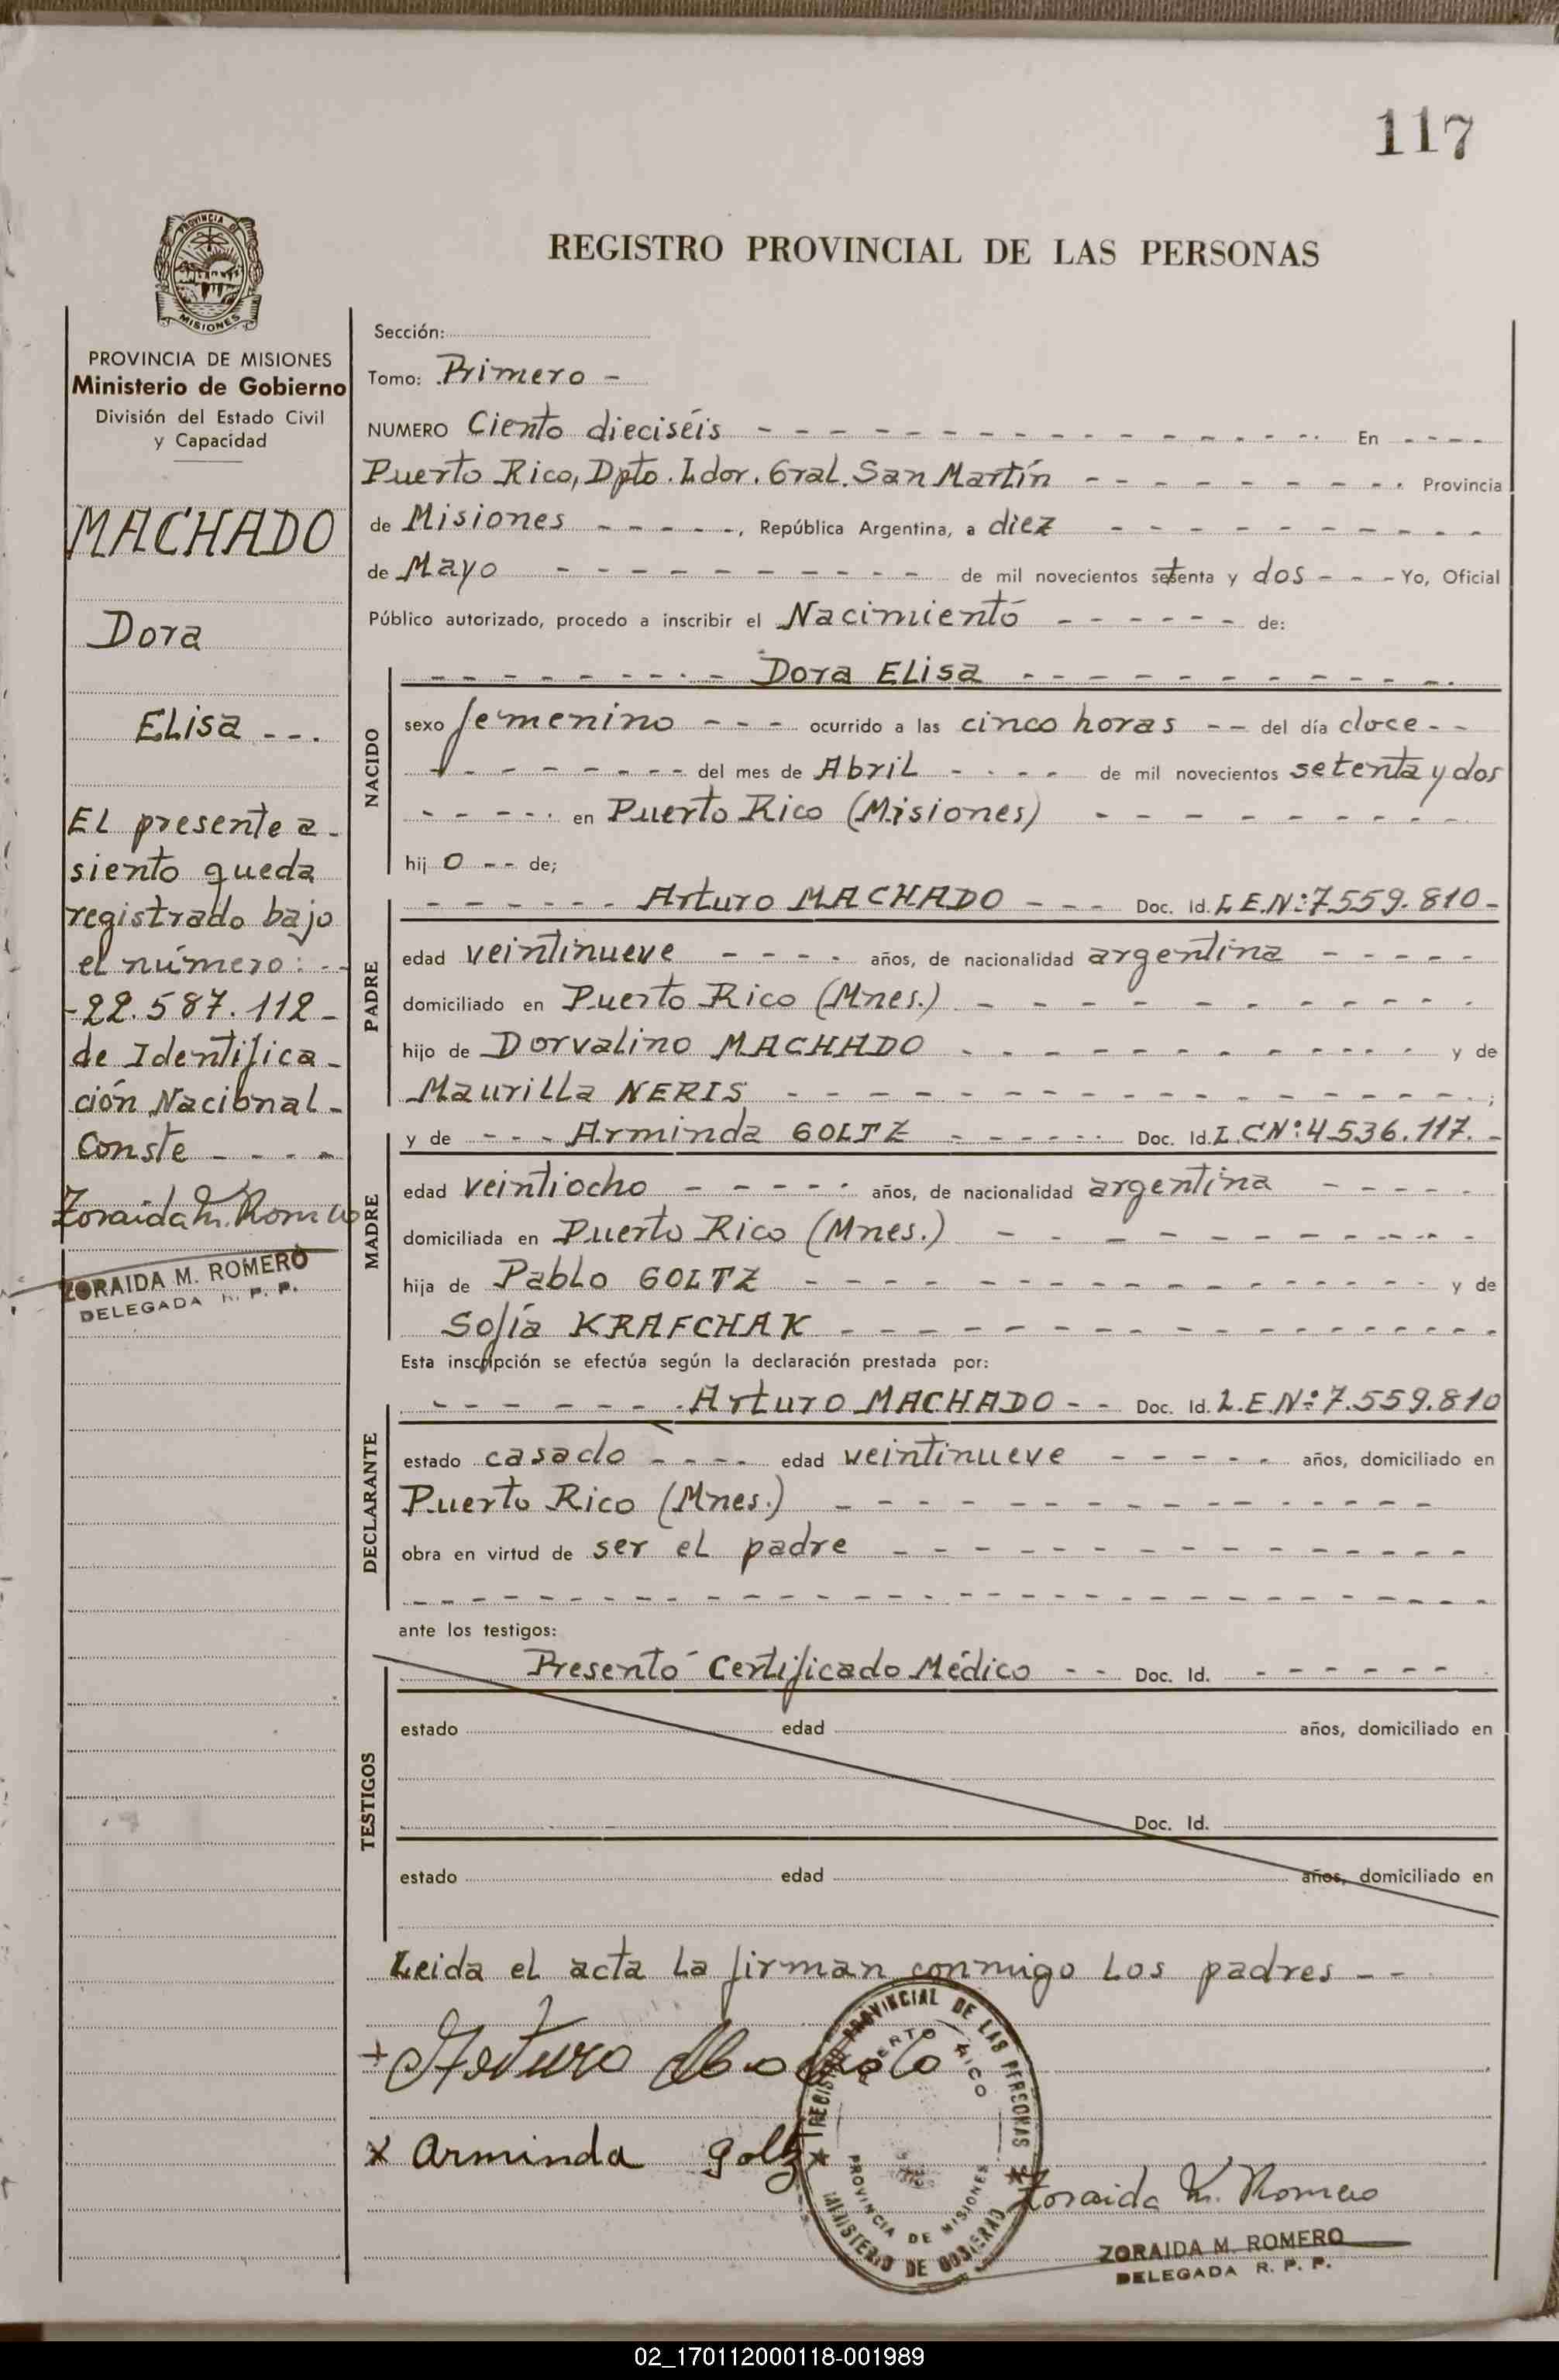 117
PROVINCIA DE
MISIONES
REGISTRO PROVINCIAL DE LAS PERSONAS
PROVINCIA DE MISIONES
Ministerio de Gobierno
División del Estado Civil
y Capacidad
MACHADO
Dora
Elisa ---.
El presente a-
siento queda
registrado bajo
el número: --
-22.587.112-
de Identifica-
ción Nacional-
Conste ----
Zoraida M. Romero
ZORAIDA M. ROMERO
DELEGADA R. P. P.
Sección:
Tomo: Primero -
NUMERO Ciento dieciséis - - - En - - - -
Puerto Rico, Dpto. Ldor. Gral. San Martín - - - Provincia
de Misiones - - - - -, República Argentina, a diez - - -
de Mayo - - - de mil novecientos setenta y dos - - - Yo, Oficial
Público autorizado, procedo a inscribir el Nacimiento - - - de:
NACIDO
- - - Dora Elisa - - -
sexo femenino - - - ocurrido a las cinco horas -- del día doce --
- - - del mes de Abril - - - - de mil novecientos setenta y dos
- - - en Puerto Rico (Misiones) - - -
hij o -- de;
PADRE
- - - Arturo MACHADO - - - Doc. Id. L.E.Nº:7559.810-
edad veintinueve - - - - años, de nacionalidad argentina - - - - -
domiciliado en Puerto Rico (Mnes.) - - -
hijo de Dorvalino MACHADO - - - y de
Maurilla NERIS - - - ;
MADRE
y de - - - Arminda GOLTZ - - - Doc. Id. L.C.Nº:4.536.117. -
edad veintiocho - - - - - años, de nacionalidad argentina - - - - -
domiciliada en Puerto Rico (Mnes.) - - -
hija de Pablo GOLTZ - - - y de
Sofía KRAFCHAK - - -
Esta inscripción se efectúa según la declaración prestada por:
DECLARANTE
- - - Arturo MACHADO - - Doc. Id. L.E.Nº:7.559.810
estado casado - - - - edad veintinueve - - - - - años, domiciliado en
Puerto Rico (Mnes.) - - -
obra en virtud de ser el padre - - -
ante los testigos:
TESTIGOS
Presentó Certificado Médico - - Doc. Id. - - - - - -
estado edad años, domiciliado en
Doc. Id.
estado edad años, domiciliado en
Leida el acta la firman conmigo los padres - -
+ Arturo Machado
x Arminda Goltz
REGISTRO PROVINCIAL DE LAS PERSONAS
PUERTO RICO
PROVINCIA DE MISIONES
MINISTERIO DE GOBIERNO
Zoraida M. Romero
ZORAIDA M. ROMERO
DELEGADA R. P. P.
02_170112000118-001989